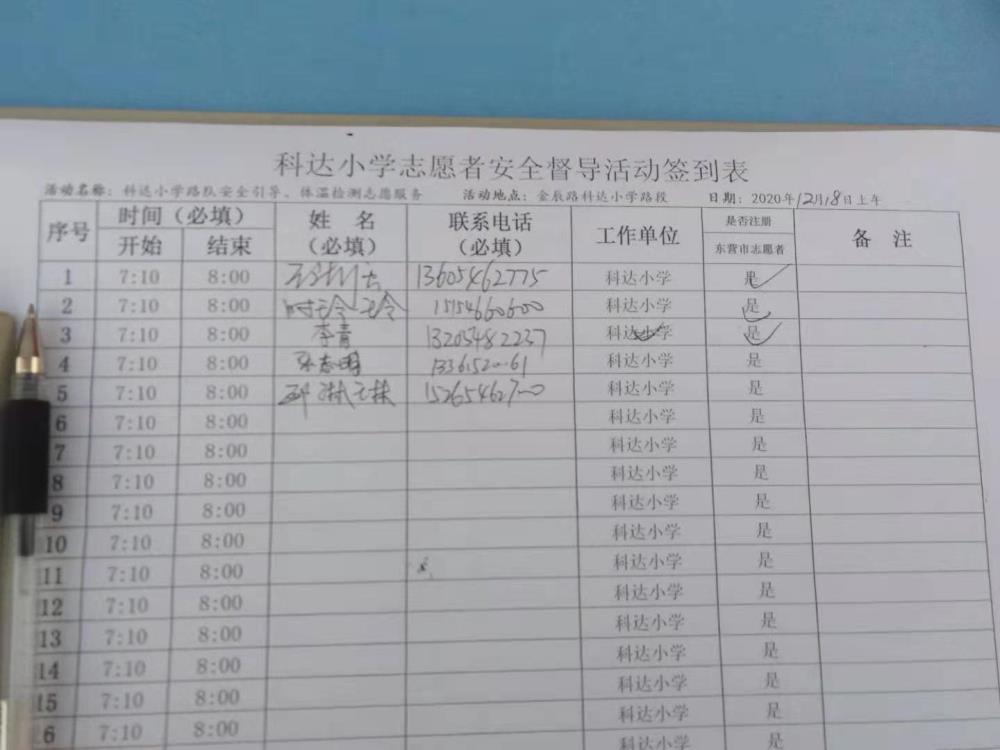 科达小学志愿者安全督导活动签到表
活动名称：科达小学路队安全引导、体温检测志愿服务 活动地点：金辰路科达小学路段 日期：2020年12月18日上午
序号 时间（必填） 姓 名（必填） 联系电话（必填） 工作单位 是否注册东营市志愿者 备 注
开始 结束
1 7:10 8:00 13605462775 科达小学 是
2 7:10 8:00 15154660600 科达小学 是
3 7:10 8:00 李青 13205482237 科达小学 是
4 7:10 8:00 科达小学 是
5 7:10 8:00 科达小学 是
6 7:10 8:00 科达小学 是
7 7:10 8:00 科达小学 是
8 7:10 8:00 科达小学 是
9 7:10 8:00 科达小学 是
10 7:10 8:00 科达小学 是
11 7:10 8:00 科达小学 是
12 7:10 8:00 科达小学 是
13 7:10 8:00 科达小学 是
14 7:10 8:00 科达小学 是
15 7:10 8:00 科达小学 是
6 7:10 8:00 科达小学 是
科达小学 是